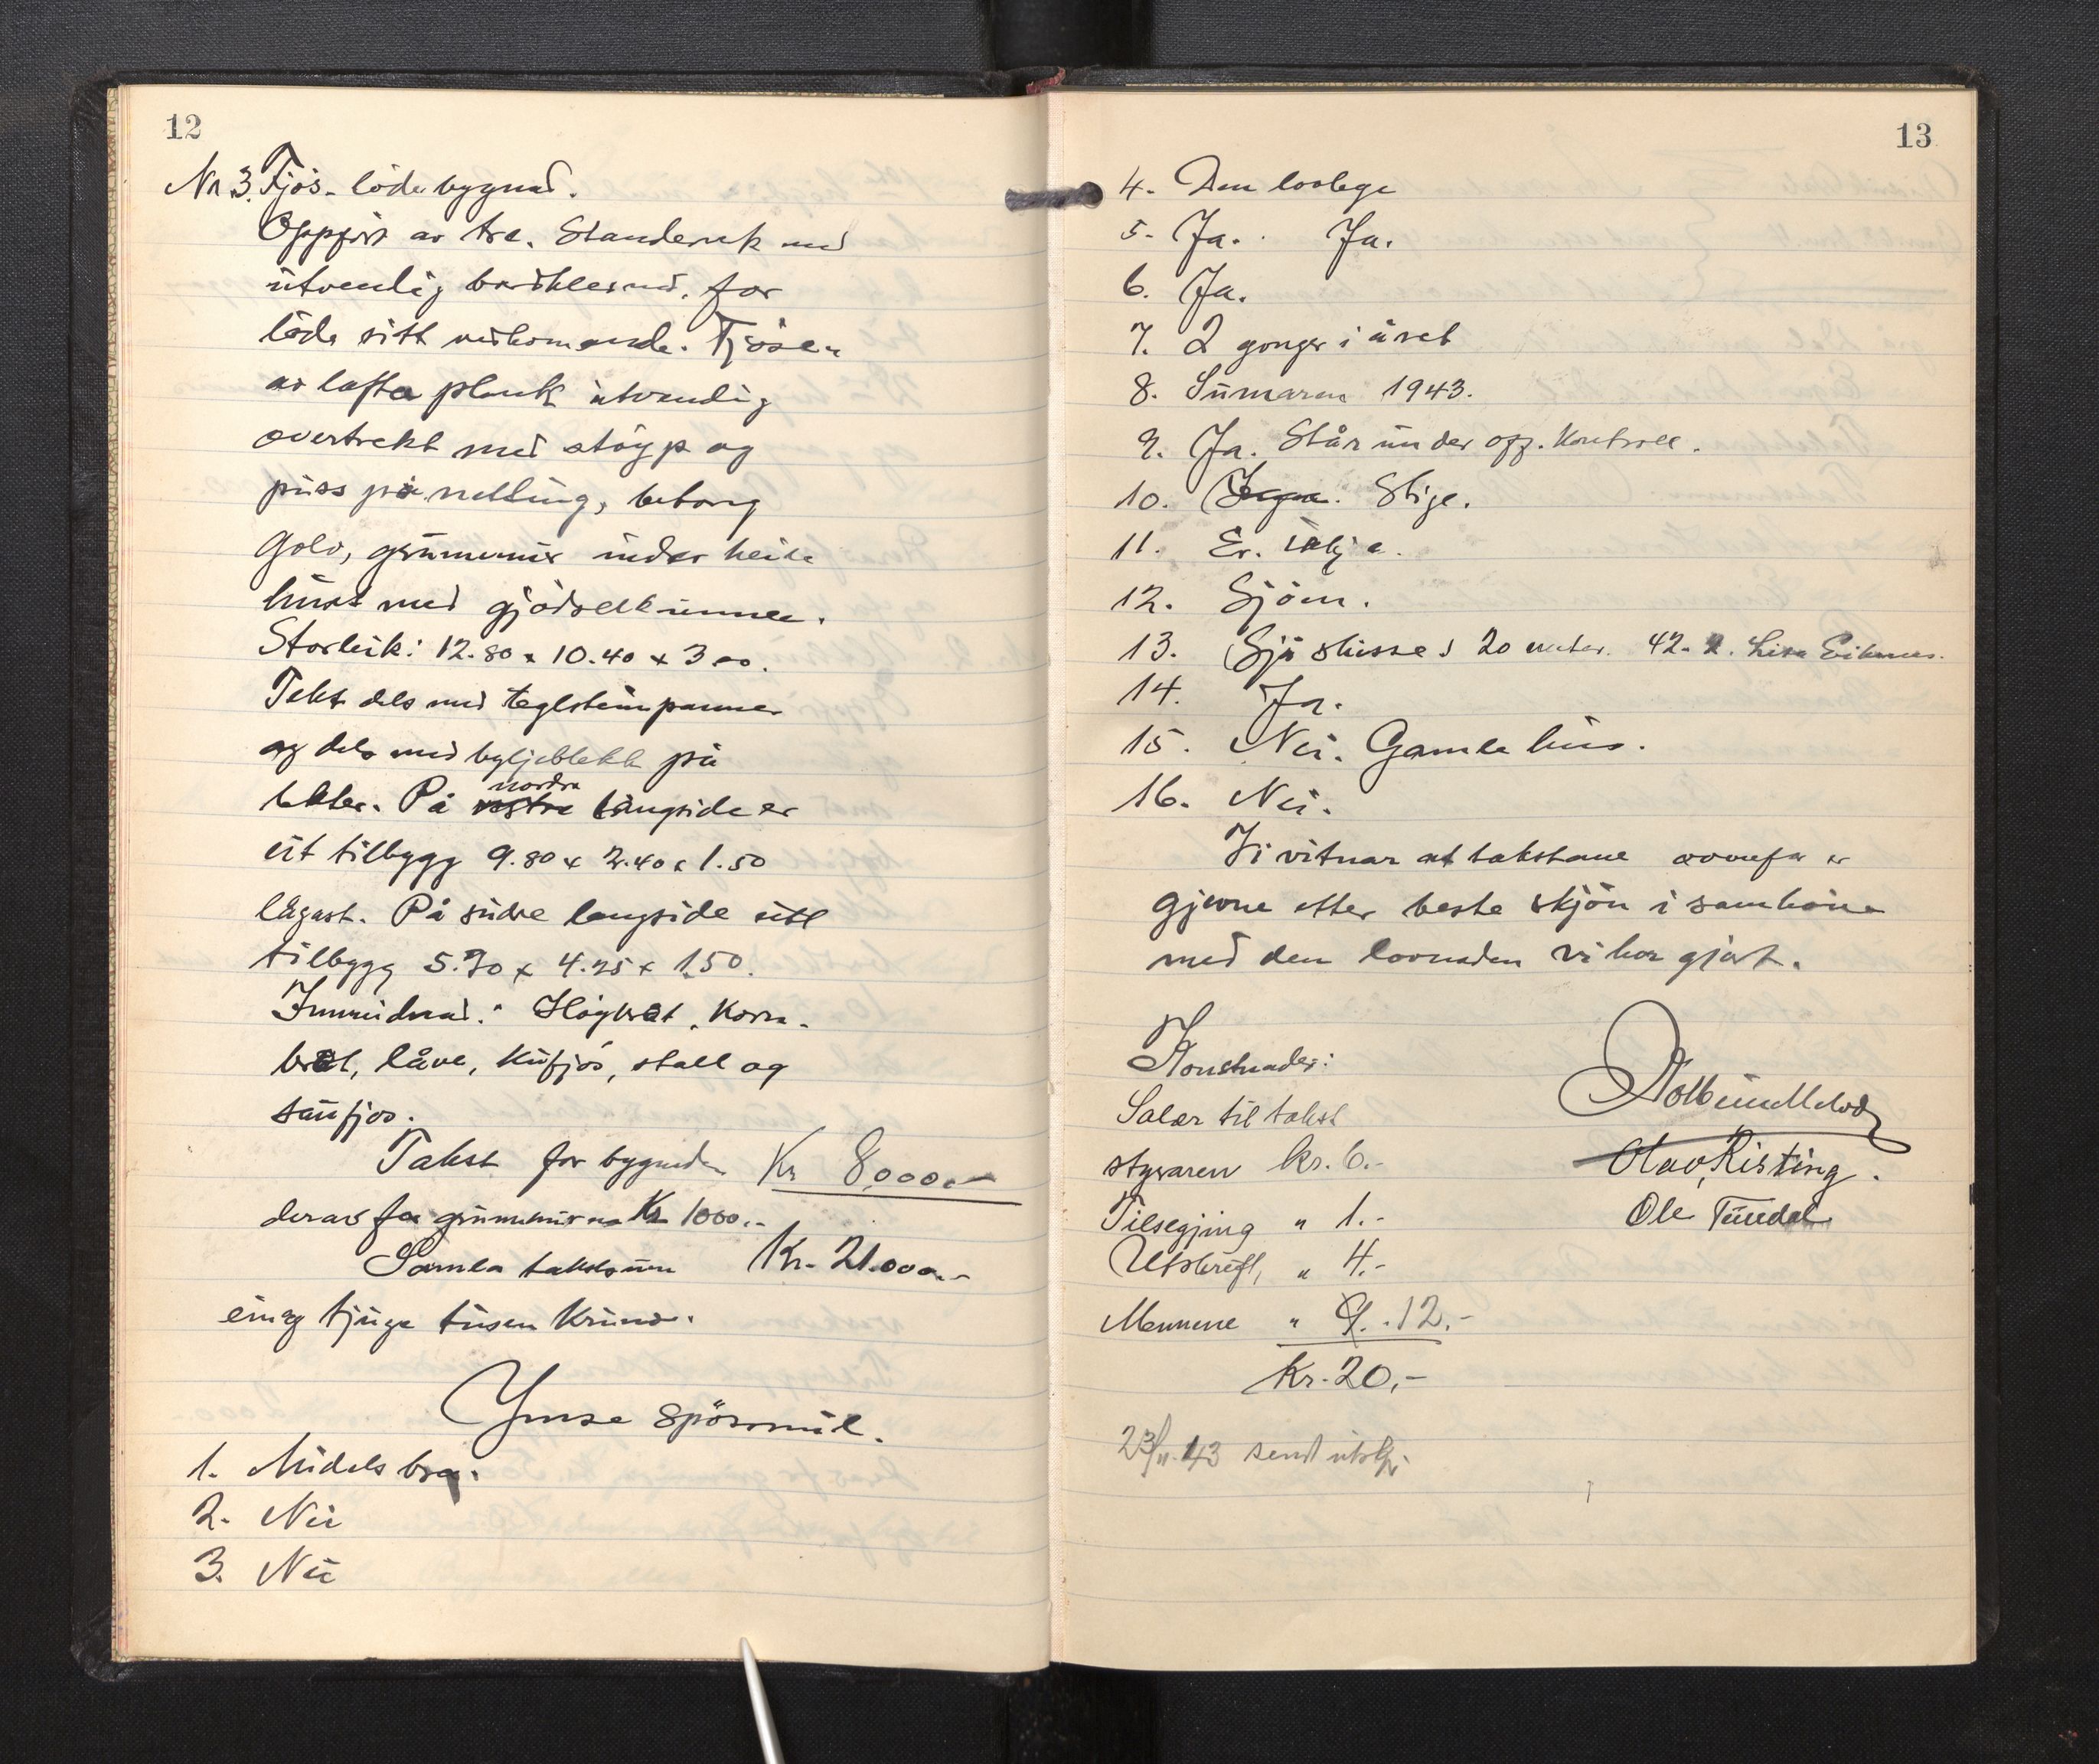 12
Nr 3. Fjös- löde bygnad.
Oppfört av tre. Standerverk med
utvendig bordkledned, for
löda sitt vedkomande. Fjösen
av lafta plank utvendig
overtrekt med stöyp og
puss på netting, betong
Golv, grunnmur under heile
huset med gjödselkummer.
Storleik: 12.80 x 10.40 x 3.00.
Tekt dels med teglsteinpanner
og dels med bylgjeblekk på
lekter. På vestre nordre langside er
eit tilbygg 9.80 x 2.40 x 1.50
lågast. På sudre langside eitt
tilbygg 5.70 x 4.25 x 1.50.
Innreidnad: Höybrot, Korn-
brot, låve, kufjös, stall og
saufjos.
Takst for bygnaden Kr 8.000.-
derav for grunnmuren Kr 1000.-
Samla takstsum Kr. 21.000.-
ein og tjuge tusen Krunor.
Ymse spörsmål.
1. Midels bra.
2. Nei
3. Nei
13
4. Den lovlege
5. Ja. Ja.
6. Ja.
7. 2 gonger i året
8. Sumaren 1943.
9. Ja. Står under off. Kontroll.
10. Ingen. Stige.
11. Er. ikkje.
12. Sjöen.
13. Sjö 20 meter. 42.
14. Ja.
15. Nei. Gamle hus.
16. Nei.
Vi vitnar at takstane ovanfor er
gjevne etter beste skjön i samhöve
med den lovnaden vi har gjort.
Konstnader:
Salær til takst
styraren kr. 6.-
Tilsegjing " 1.-
Utskrift, " 4.-
Mennene " 9. 12.-
Kr. 20,-
Olav Risting.
Ole Tundal
23/11.43 send utskr.